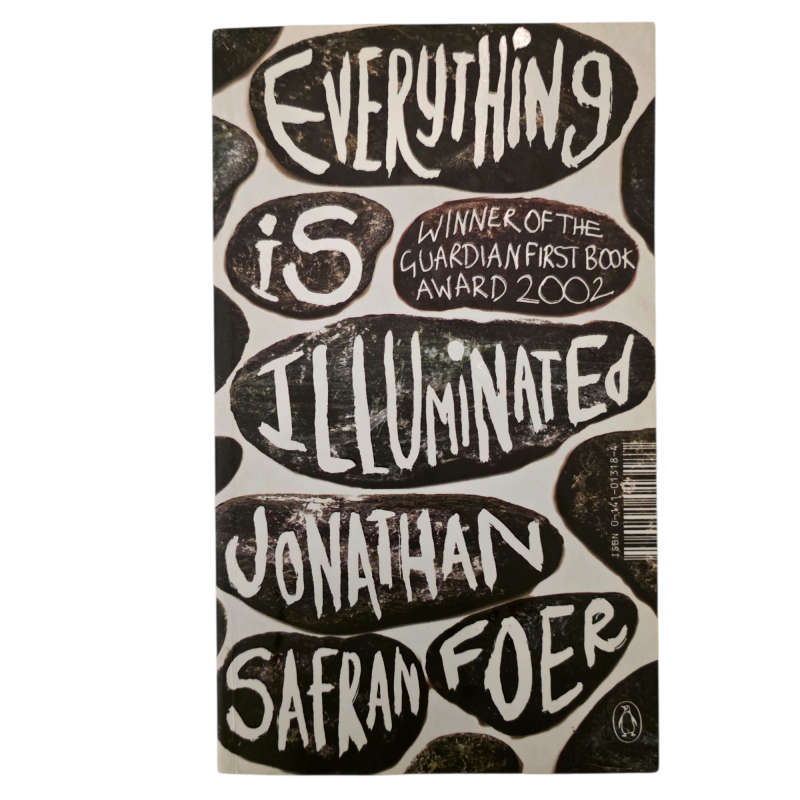 EVERYTHiNg
iS
WINNER OF THE
GUARDIAN FIRST BOOK
AWARD 2002
ILLUMiNATEd
JONATHAN
SAFRAN FOER
ISBN 0-141-01318-4